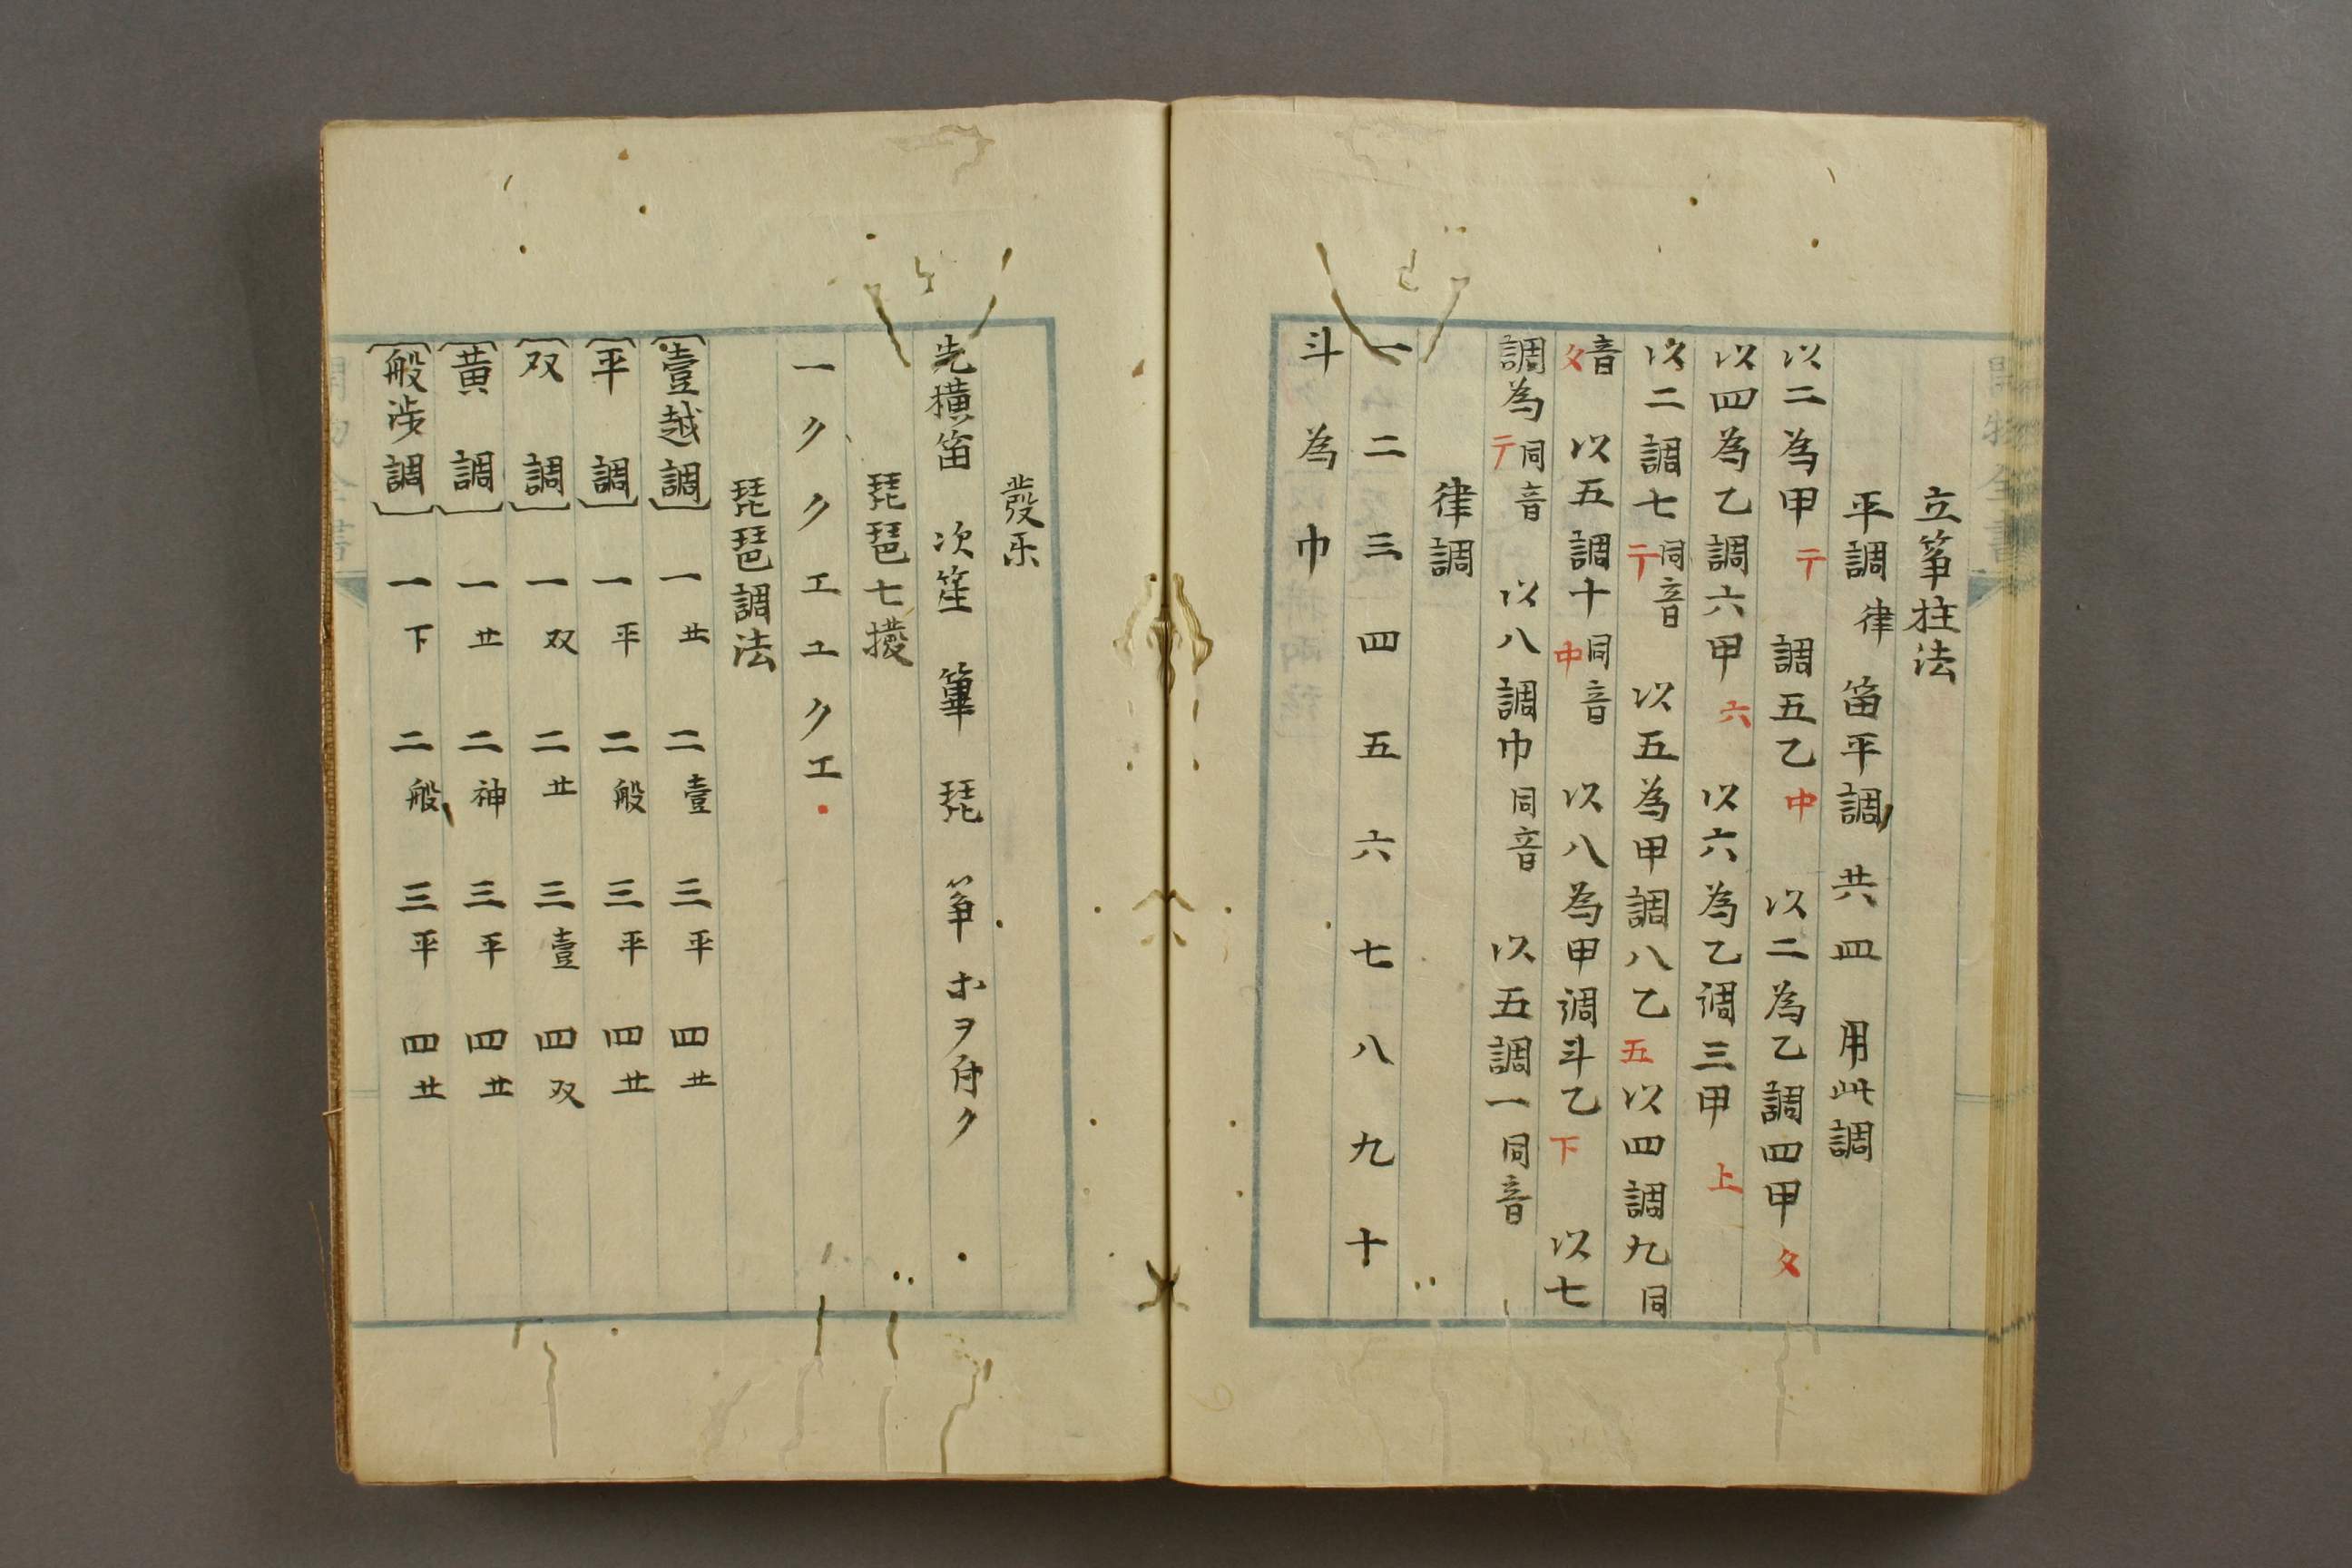 立筝柱法
平調律 笛平調 共皿 用此調
以二為甲〒 調五乙中 以二為乙調四甲夕
以四為乙調六甲六 以六為乙調三甲上
以二調七〒同音 以五為甲調八乙五以四調九同
音夕 以五調十中同音 以八為甲調斗乙下 以七
調為〒同音 以八調巾同音 以五調一同音
律調
一二三四五六七八九十
斗為巾
發乐
先横笛 次笙 篳 琵 筝ホヲ付ク
琵琶七撥
一クククエユクエ
琵琶調法
壹越調 一㐀 二壹 三平 四㐀
平調 一平 二般 三平 四㐀
双調 一双 二㐀 三壹 四双
黄調 一㐀 二神 三平 四㐀
般渉調 一下 二般 三平 四㐀